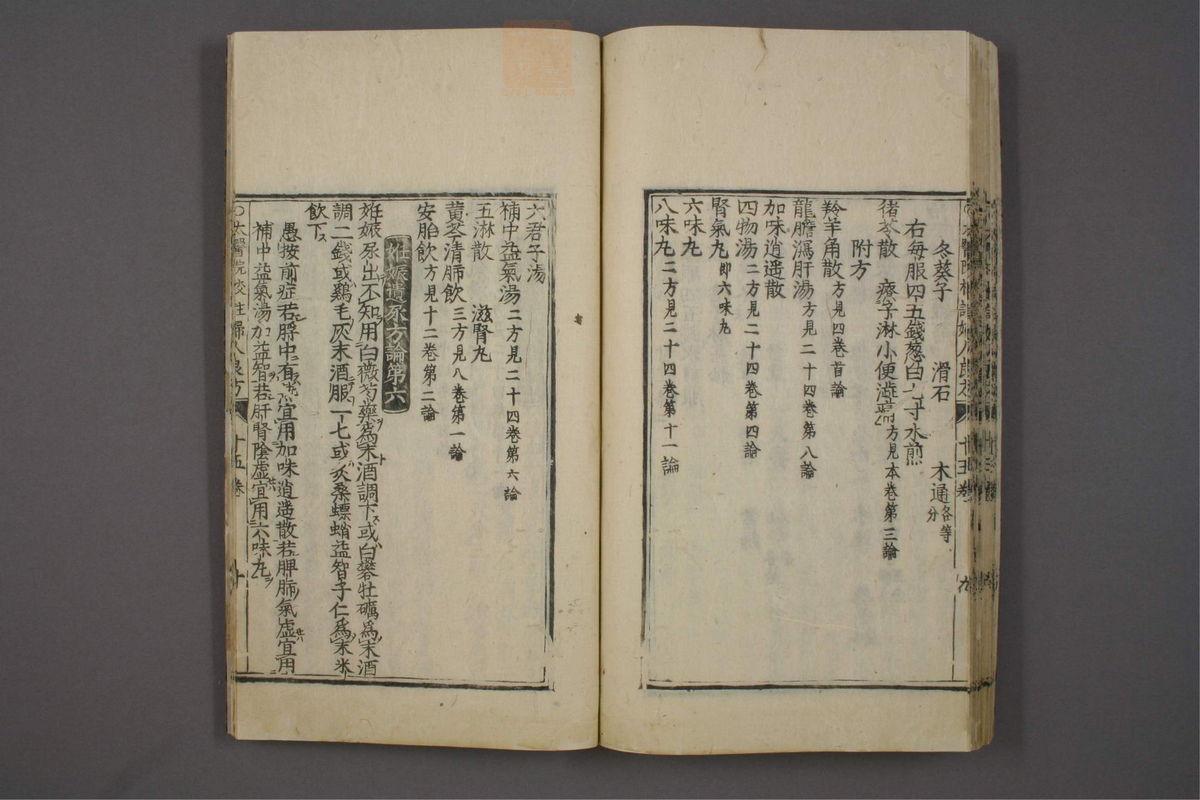 冬葵子　滑石　木通各等分
右每服四五錢葱白一寸水煎
猪苓散　療子淋小便澁痛方見本卷第三論
附方
羚羊角散方見四卷首論
龍膽瀉肝湯方見二十四卷第八論
加味逍遥散
四物湯二方見二十四卷第四論
腎氣丸即六味丸
六味丸
八味丸二方見二十四卷第十一論
六君子湯
補中益氣湯二方見二十四卷第六論
五淋散　滋腎丸
黄芩清肺飲三方見八卷第一論
安胎飲方見十二卷第二論
妊娠遺尿方論第六
妊娠尿出不知用白薇芍藥爲末酒調下或白礬牡礪爲末酒
調二錢或鷄毛灰末酒服一七或炙桑螵蛸益智子仁爲末米
飲下
愚按前症若脬中有熱宜用加味逍遥散若脾肺氣虚宜用
補中益氣湯加益智若肝腎陰虚宜用六味丸
太醫院校註婦人良方　十五卷　十